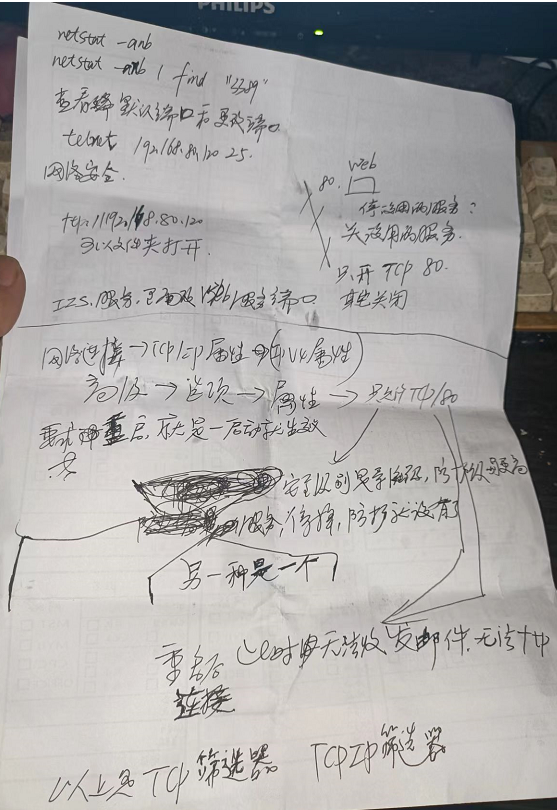 PHILIPS
netstat -anb
netstat -anb | find "3389"
查看 默认端口和更改端口
telnet 192.168.80.120 25.
网络安全.
80. Web
停 用的服务?
关没用的服务.
只开 TCP 80.
其它关闭
192.168.80.120
可以文件夹打开.
服务. 更改 Web 服务端口
网络连接 → TCP/IP 属性 → (IPV4 属性)
高级 → 选项 → 属性 → 只允许TCP/80
要求 重启, 就是一启动就生效
安全级别是 级, 防护 最高
服务, 停掉, 防护就没有了
另一种是一个
重启后 此时 无法收发邮件. 无法http
连接
以上是 TCP 筛选器 TCP IP 筛选器